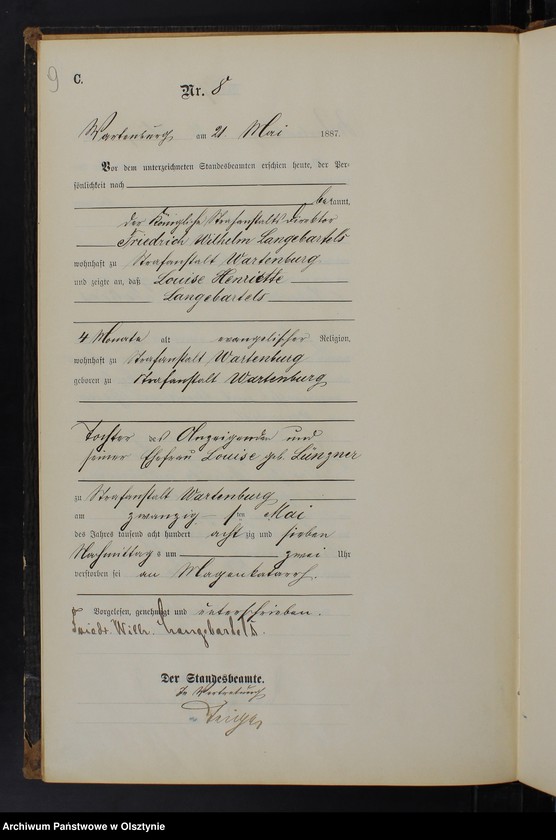 9
C.
Nr. 8
Wartenburg am 21 Mai 1887.
Vor dem unterzeichneten Standesbeamten erschien heute, der Per-
sönlichkeit nach
bekannt,
der Königliche Strafanstalts Direktor
Friedrich Wilhelm Langebartels
wohnhaft zu Strafanstalt Wartenburg
und zeigte an, daß Louise Henriette
Langebartels
4 Monate alt evangelischer Religion,
wohnhaft zu Strafanstalt Wartenburg
geboren zu Strafanstalt Wartenburg
Tochter des Anzeigenden und
seiner Ehefrau Louise geb. Lünzner
zu Strafanstalt Wartenburg
am zwanzigsten Mai
des Jahres tausend acht hundert achtzig und sieben
Nachmittags um zwei Uhr
verstorben sei an Magenkatarrh.
Vorgelesen, genehmigt und unterschrieben.
Friedr. Wilh. Langebartels.
Der Standesbeamte.
In Vertretung
Archiwum Państwowe w Olsztynie